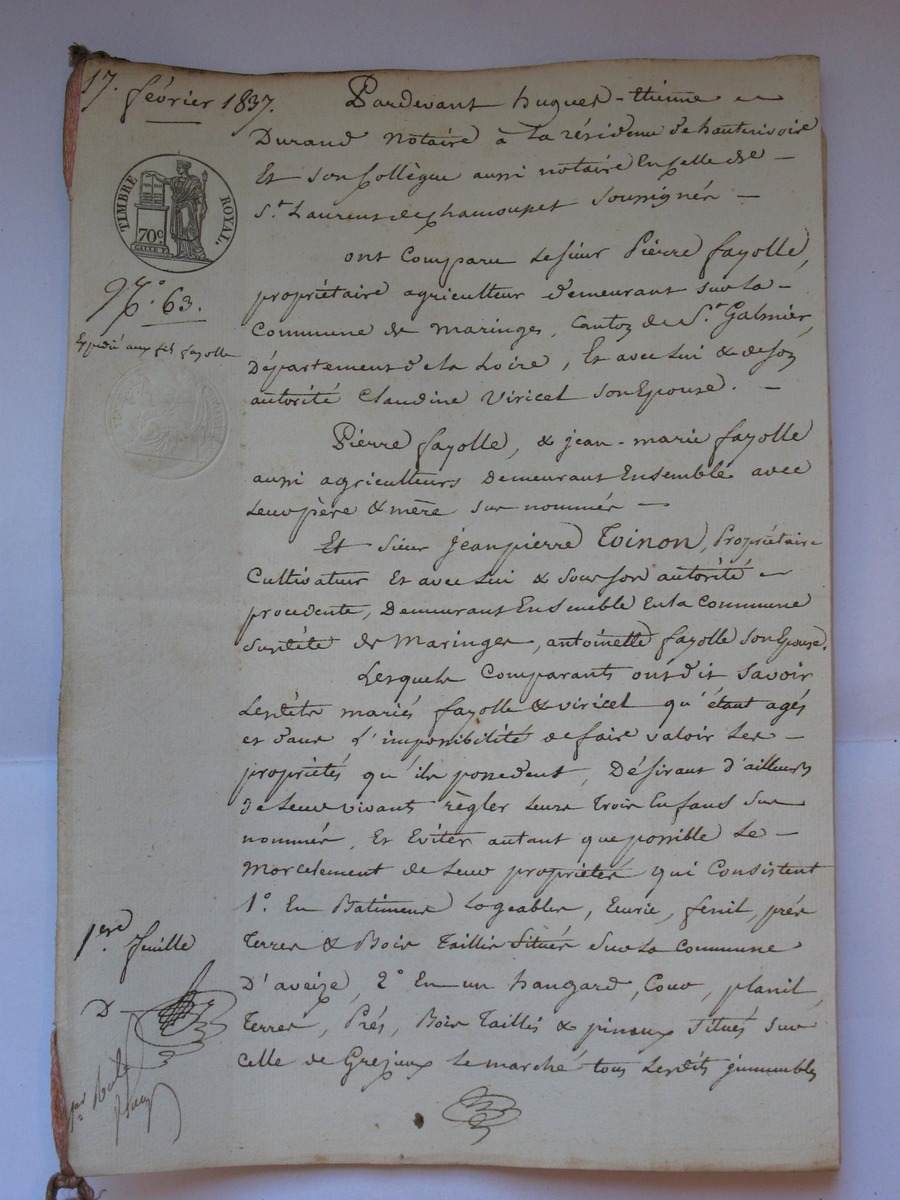 17. février 1837.
TIMBRE ROYAL.
70c
N° 63.
Expédié aux fils fayolle
1ere feuille
D
Pardevant hugues-etienne
Durand notaire à la résidence de hauterivoire
Et son Collègue aussi notaire En celle de
St. Laurent de chamousset soussignés
ont Comparu Le sieur Pierre fayolle,
propriétaire agriculteur demeurant sur la
Commune de maringes, Canton de St. Galmier,
Département de la Loire, Et avec lui & de son
autorité Claudine Viricel son Epouse.
Pierre fayolle, & jean-marie fayolle
aussi agriculteurs Demeurant Ensemble avec
leurs père & mère sus nommés
Et sieur jean pierre Toinon, Propriétaire
Cultivateur Et avec Lui & sous son autorité
procedente, Demeurant Ensemble En la Commune
susdite de Maringes, antoinette fayolle son Epouse.
Lesquels Comparants ont dit savoir
Lesdits mariés fayolle & viricel qu'étant agés
et dans l'impossibilité de faire valoir Les
propriétés qu'ils possedent, Désirant d'ailleurs
de leurs vivants règler leurs Trois Enfans sus
nommés, Et Eviter autant que possible Le
Morcelement de leurs propriétés qui Consistent
1°. En Batimens Logeables, Ecurie, fenil, prés
Terres & Bois Taillis Situés Sur La Commune
D'aveize, 2° En un hangard, Cour,
Terres, Prés, Bois Taillis & pineaux situés sur
Celle de Grejeux Le marché tous Lesdits jmmeubles